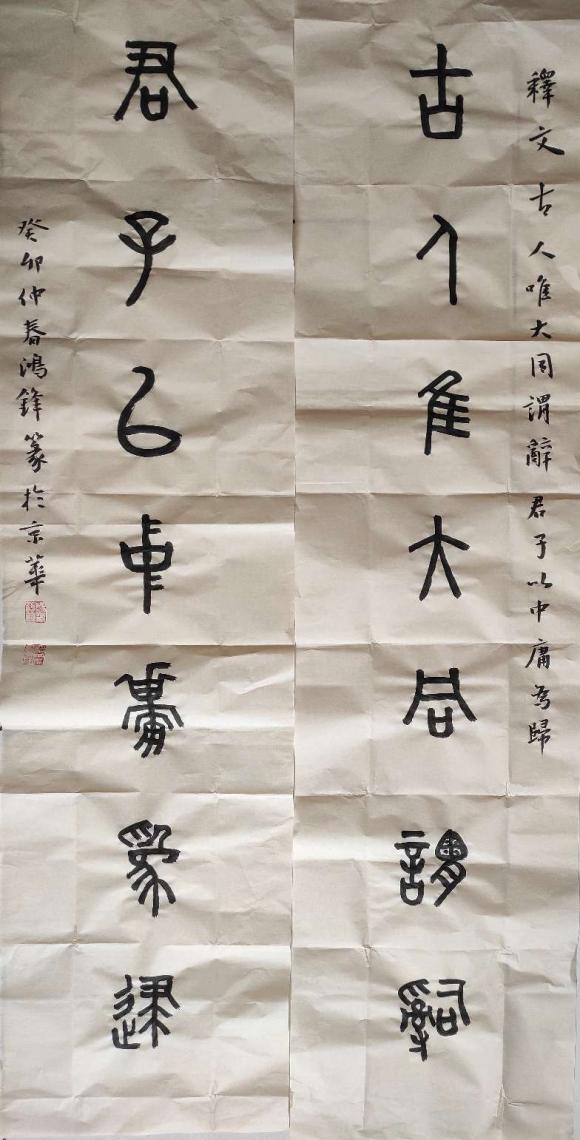 釋文 古人唯大同謂辭 君子以中庸為歸
古人隹大同謂辭
君子以中庸為歸
癸卯仲春鴻鋒篆於京華